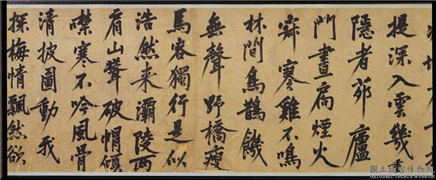 深入雲幾
隱者茆廬
門晝扃煙火
寂寒雞不鳴
林間烏鵲饑
無聲野橋瘦
馬客獨行是似
浩然来灞陵兩
肩山聳破帽傾
噤寒不吟風骨
清披圖動我
探梅情飄然欲
國立故宮博物院